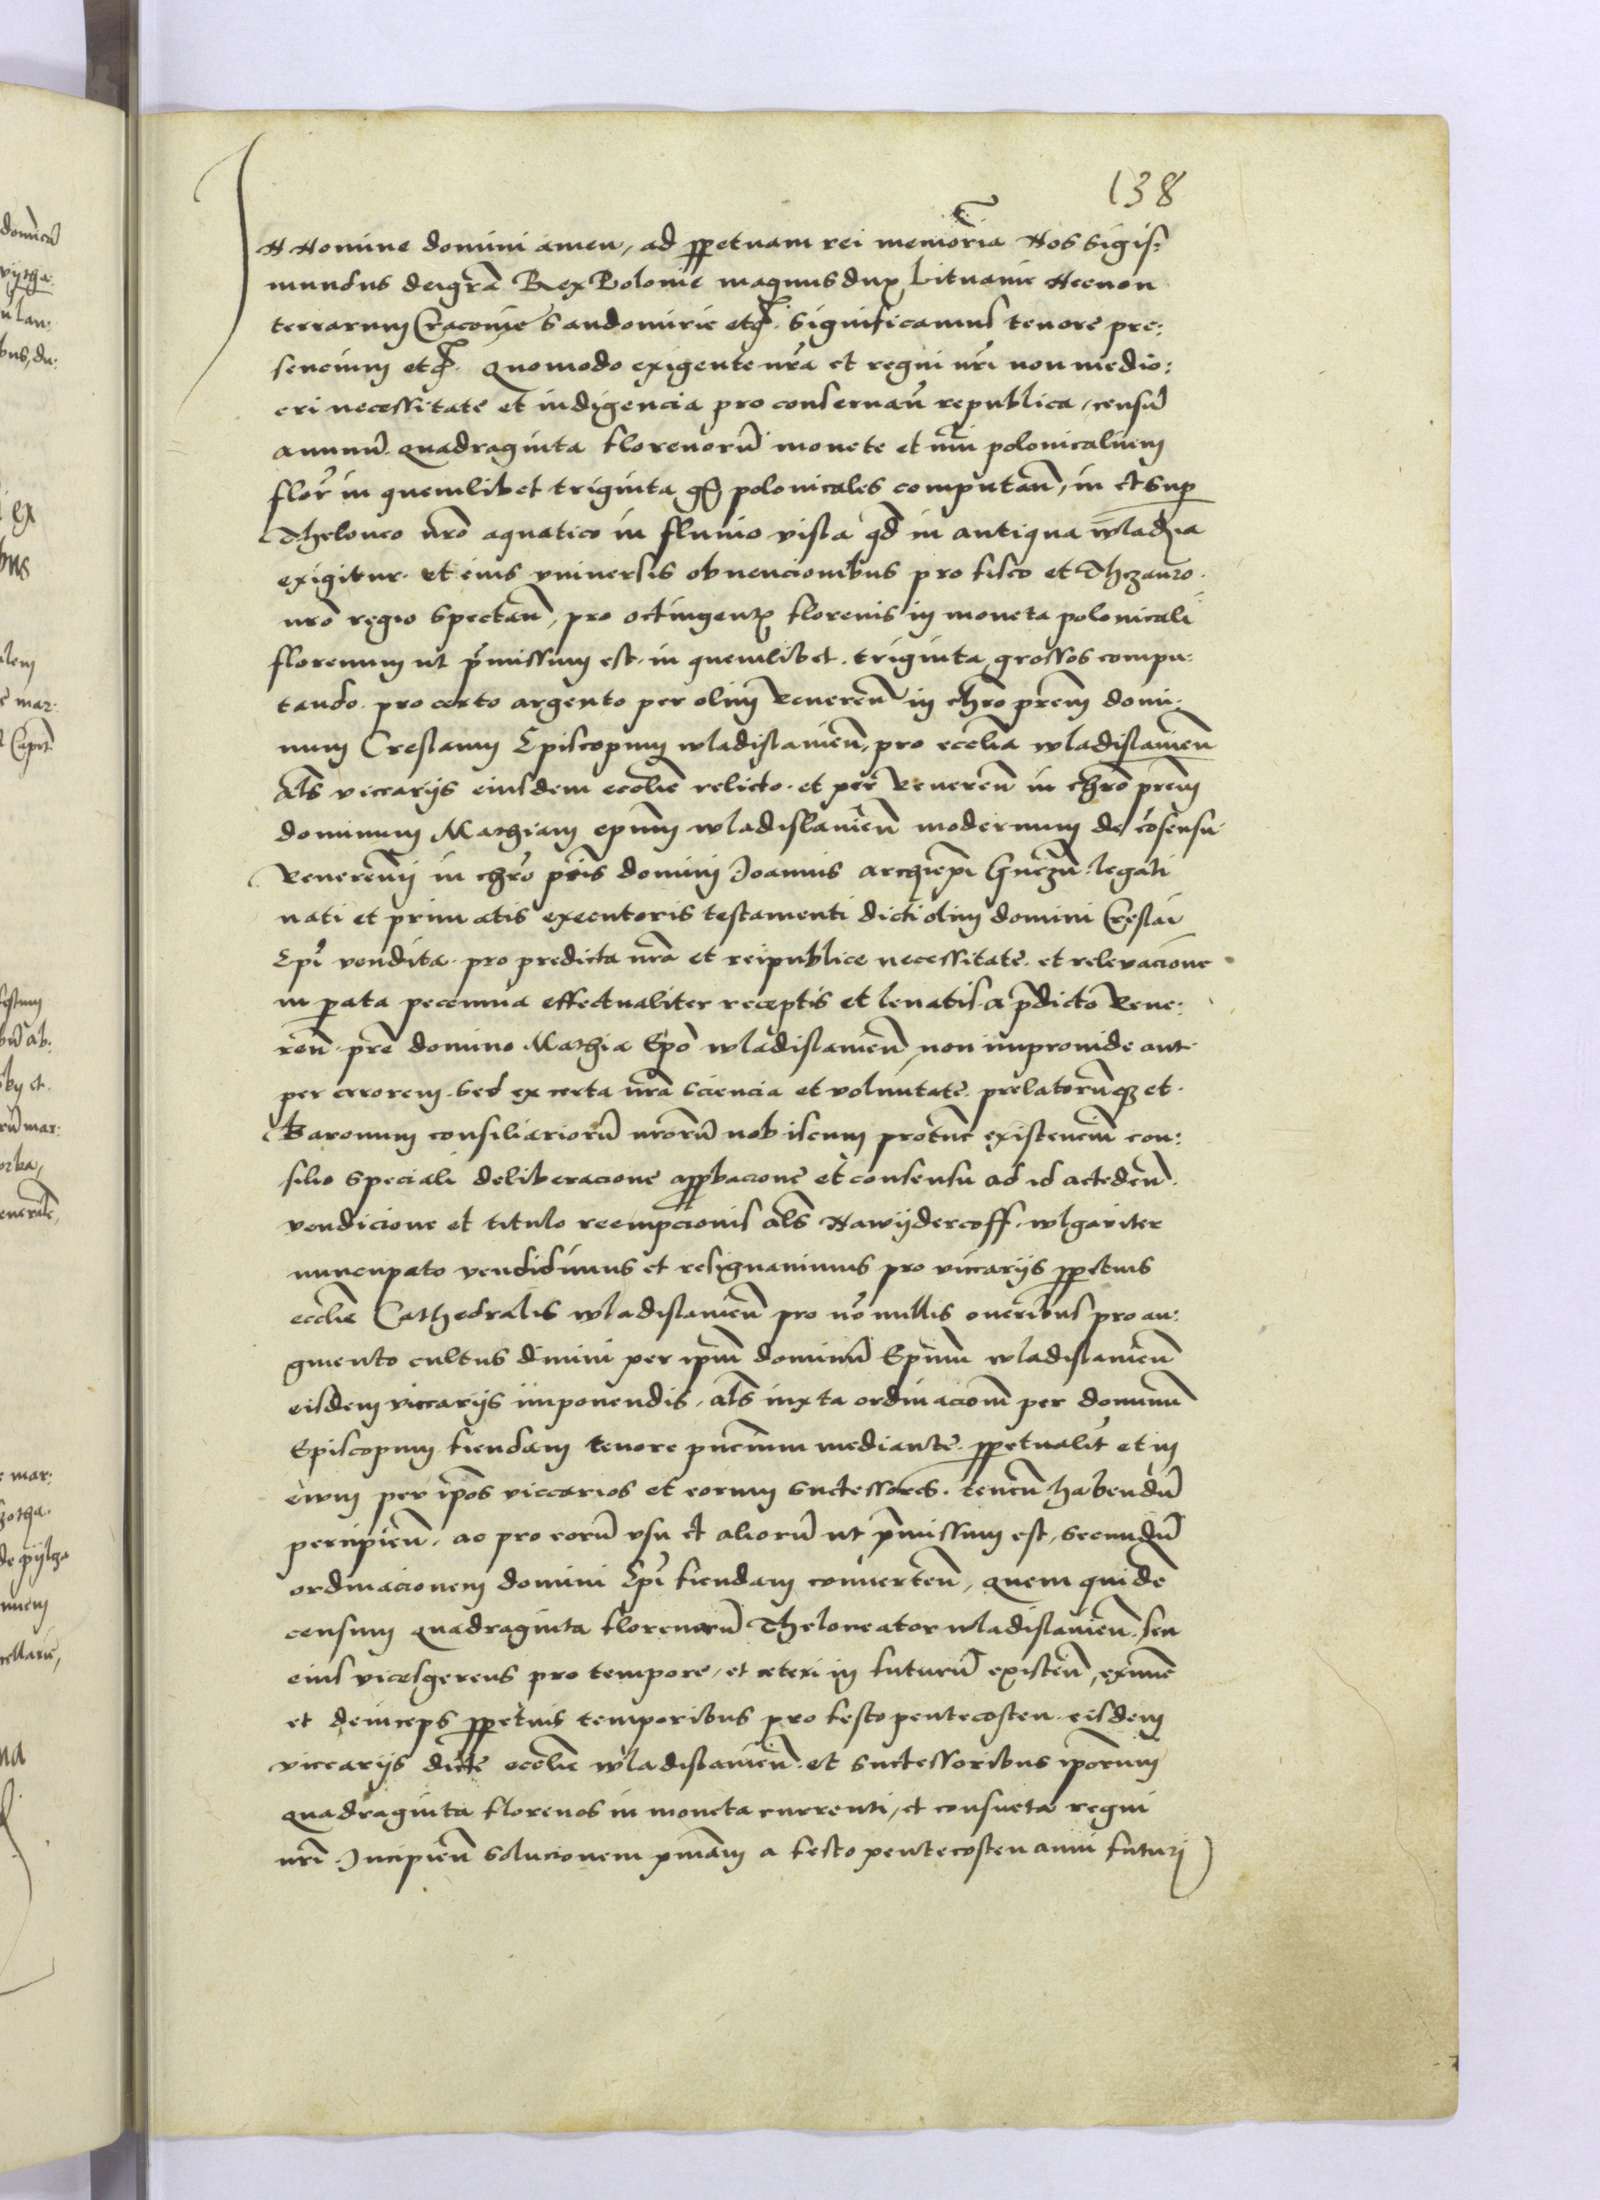 138
In Nomine domini amen, ad ꝑpetuam rei memoriã Nos Sigis=
mundus dei grã Rex Polonie magnus dux Lituanie Necnon
terrarum Cracouie Sandomirie etc̃. Significamus tenore pre:
sencium etc̃. Quomodo exigente nr̃a et regni nr̃i non medio:
cri necessitate et indigencia pro conseruañ republica, censũ
annuũ quadraginta florenorũ monete et nũi polonicalium
flor̃ in quemlibet triginta gr̃ polonicales computañ, in et sup̱
Theloneo nr̃o aquatico in fluuio visla qđ in antiqua wladia
exigitur. et eius vniuersis obuencionibus pro fisco et Thezauro
nr̃o regio spectañ, pro octingentꝭ florenis in moneta polonicali
florenum ut p̃missum est in quemlibet. triginta grossos compu:
tando. pro certo argento per olim Reuereñ in chr̃o pr̃em domi:
num Creslaum Episcopum wladislauieñ, pro ecclia wladislauieñ
als̃ viccarijs eiusdem ecclie relicto. et per Reuereñ in chr̃o pr̃em
dominum Mathiam ep̃um wladislauieñ modernum de cõsensu
Reuereñ in chr̃o pr̃is domini Joannis archiep̃i Gnezñ legati
nati et primatis executoris testamenti dicti olim domini Creslai
Ep̃i vendita. pro predicta nr̃a et reipublice necessitate. et releuacione
in parata pecunia effectualiter receptis et leuatis a p̃dicto Reue:
reñ pr̃e domino Mathia Ep̃o wladislauieñ, non improuide aut
per errorem. sed ex certa nr̃a sciencia et voluntate. prelatorũqꝫ et
Baronum consiliariorũ nr̃orũ nobiscum protũc existenciũ con:
silio speciali deliberacione approbacione et consensu ad id accedeñ.
vendicione et titulo reempcionis als̃ Nawijdercoff. wlgariter
nuncupato vendidimus et resignauimus pro viccarijs ꝑpetuis
ecclie Cathedralis wladislauieñ pro nõnullis oneribus pro au:
gmento cultus diuini per ip̃m dominũ Ep̃um wladislauieñ
eisdem viccarijs imponendis. als̃ iuxta ordinacioñ per dominũ
Episcopum fiendam tenore p̃ncium mediante. ꝑpetualit̃ et in
ewm per ip̃os viccarios et eorum successores. teneñ habendũ
percipieñ. ac pro eorũ vsu et aliorũ ut p̃missum est, secundũ
ordinacionem domini Ep̃i fiendam conuerteñ, quem quidẽ
censum quadraginta florenorũ Theloneator wladislauieñ. seu
eius vicesgerens pro tempore, et ceteri in futurũ existeñ, exnũc
et deinceps ꝑpetuis temporibus pro festo pentecosten eisdem
viccarijs dicte ecclie wladislauieñ et successoribus ip̃orum
quadraginta florenos in moneta currenti, et consueta regni
nr̃i. Incipieñ solucionem p̃mam a festo pentecosten anni futuri